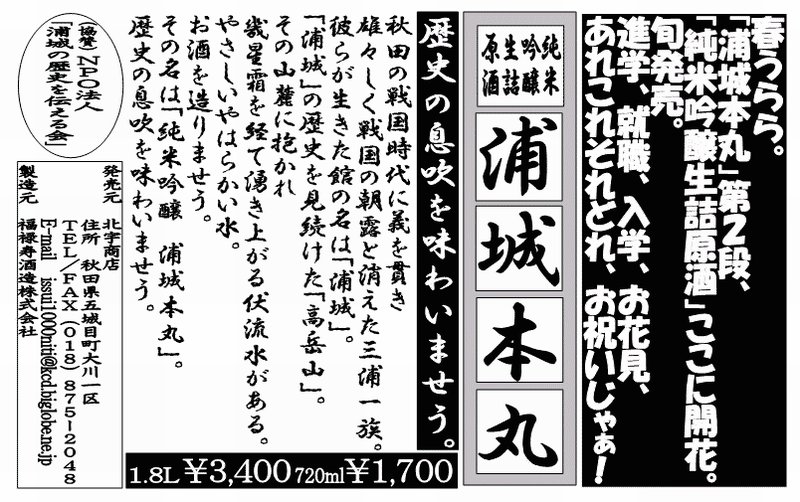 春うらら。
「浦城本丸」第2段、
「純米吟醸生詰原酒」ここに開花。
旬発売。
進学、就職、入学、お花見、
あれこれそれどれ、お祝いじゃぁ！
純米
吟醸
生詰
原酒
浦城本丸
歴史の息吹を味わいませう。
秋田の戦国時代に義を貫き
雄々しく戦国の朝露と消えた三浦一族。
彼らが生きた館の名は「浦城」。
「浦城」の歴史を見続けた「高岳山」。
その山麓に抱かれ
幾星霜を経て湧き上がる伏流水がある。
やさしいやはらかい水。
お酒を造りませう。
その名は「純米吟醸 浦城本丸」。
歴史の息吹を味わいませう。
1.8L ¥3,400 720ml ¥1,700
（協賛）NPO法人
「浦城の歴史を伝える会」
発売元 北宇商店
住所 秋田県五城目町大川一区
TEL/FAX（018）875-2048
E-mail issui1000niti@kcd.biglobe.ne.jp
製造元 福禄寿酒造株式会社